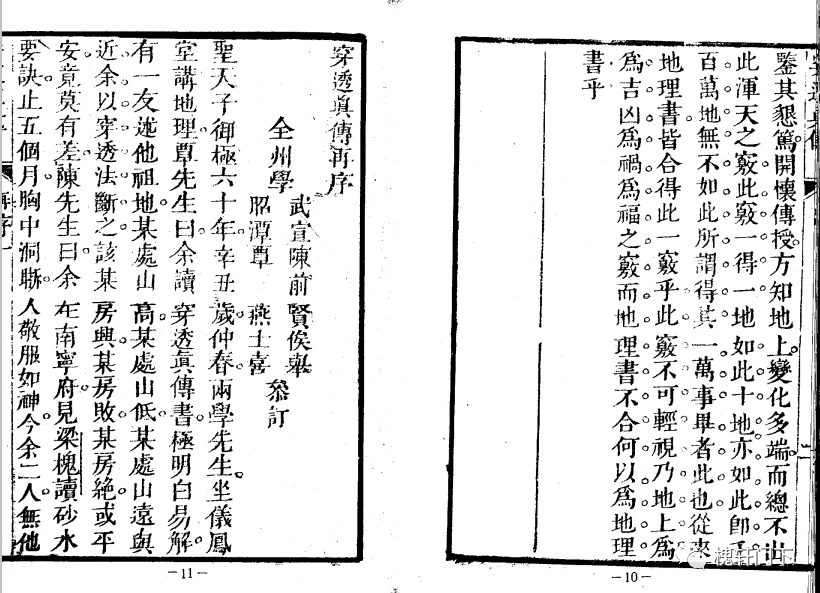 鑒其懇篤開懷傳授方知地上變化多端而總不出
此渾天之竅此竅一得一地如此十地亦如此即千
百萬地無不如此所謂得其一萬事畢者此也從來
地理書皆合得此一竅乎此竅不可輕視乃地上爲
爲吉凶爲禍爲福之竅而地理書不合何以爲地理
書乎
—10—
穿透眞傳再序
武宣陳前賢俟舉
全州學
叅訂
昭潭覃燕士喜
聖天子御極六十年辛丑歲仲春兩學先生坐儀鳳
堂講地理覃先生曰余讀穿透眞傳書極明白易解
有一友述他祖地某處山高某處山低某處山遠與
近余以穿透法斷之該某房興某房敗某房絕或平
安竟莫有差陳先生曰余在南寧府見梁槐讀砂水
要訣止五個月胸中洞晰人敬服如神今余二人無他
再序一
—11—
槐轩门下